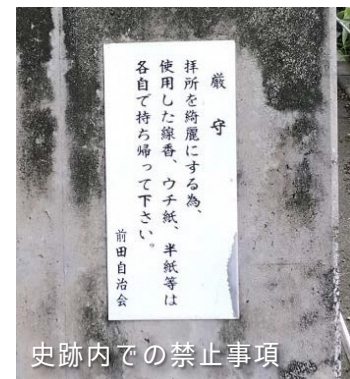 厳守
拝所を綺麗にする為、
使用した線香、ウチ紙、半紙等は
各自で持ち帰って下さい。
前田自治会
史跡内での禁止事項